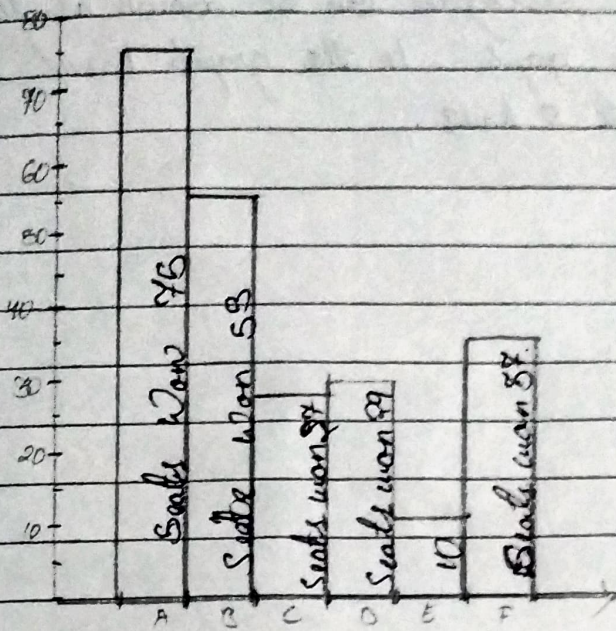 80
70
60
50
40
30
20
10
Seats Won 75
Seats Won 55
Seats won 37
Seats won 29
10
Seats won 37
A B C D E F